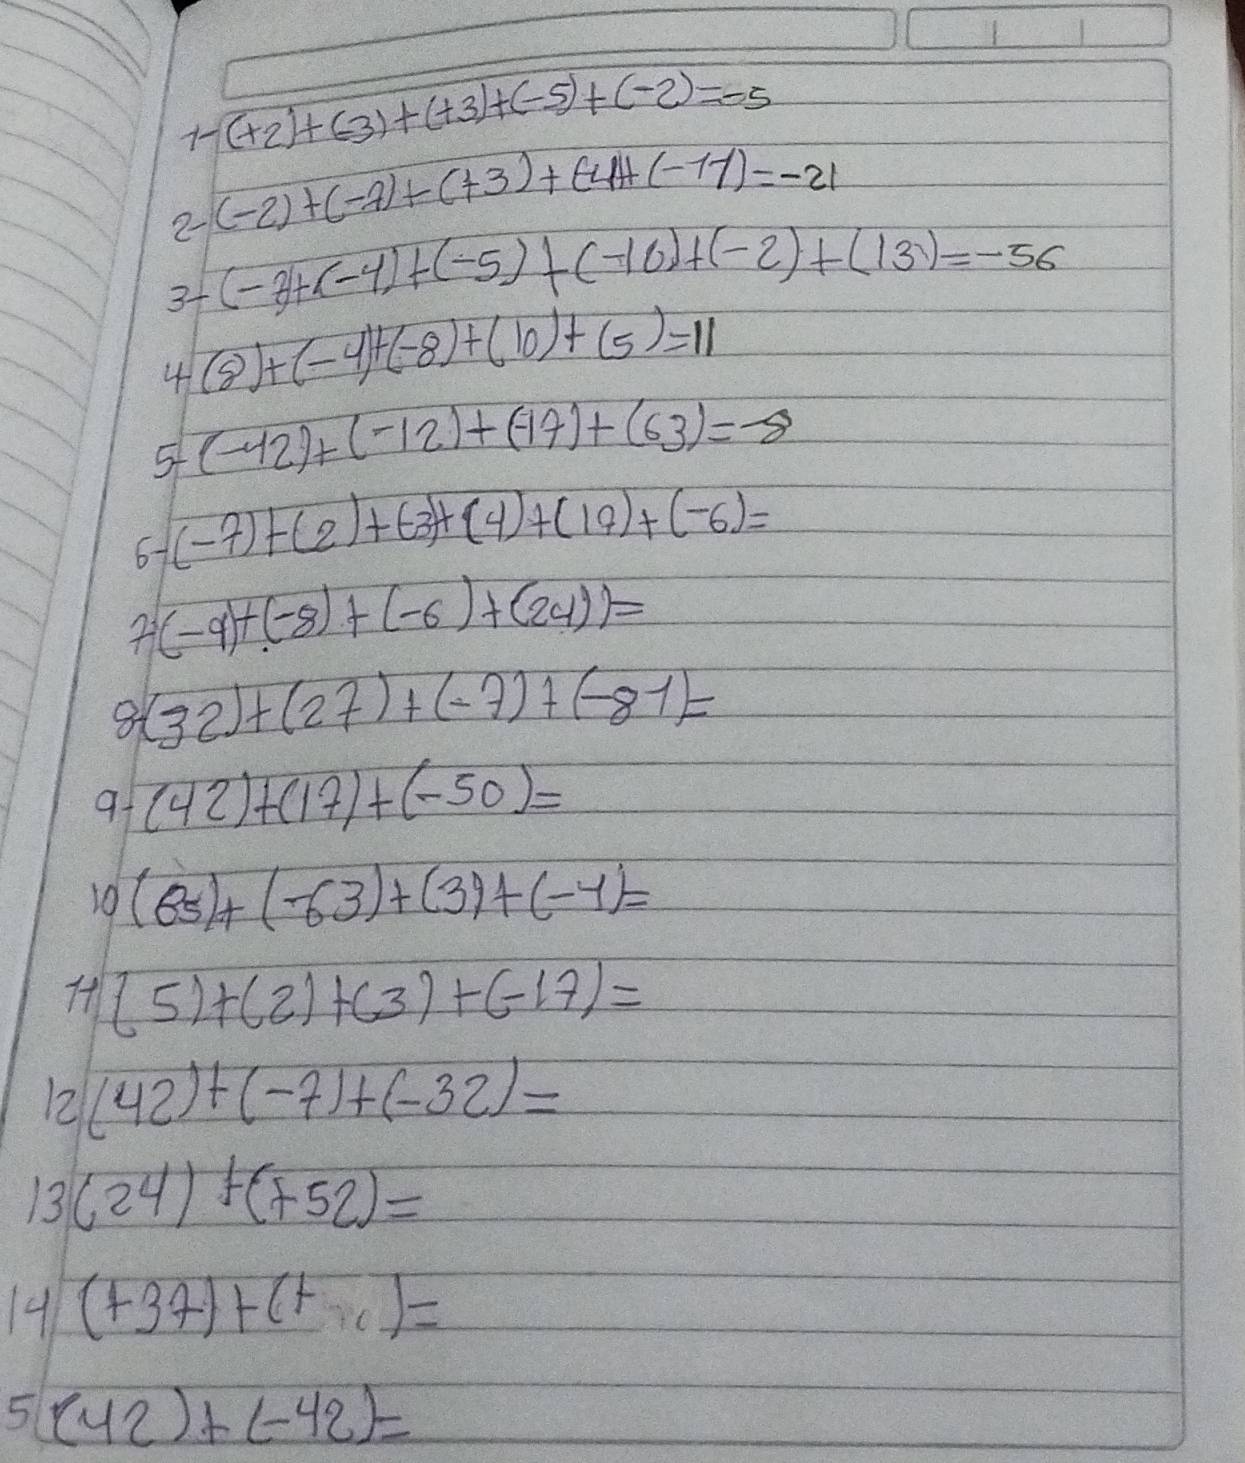 1-(+2)+(-3)+(+3)+(-5)+(-2)=-5
2-(-2)+(-7)+(+3)+(-4)+(-11)=-21
3-(-7)+(-4)+(-5)+(-10)+(-2)+(13)=-56
4-(8)+(-4)+(-8)+(10)+(5)=11
5-(-42)+(-12)+(-17)+(63)=-8
6-(-7)+(2)+(-3)+(4)+(19)+(-6)=
7-(-9)+(-8)+(-6)+(24))=
8-(32)+(27)+(-7)+(-81)=
9-(42)+(17)+(-50)=
10(65)+(-63)+(3)+(-4)=
11(5)+(2)+(3)+(-17)=
12(42)+(-7)+(-32)=
13(24)+(+52)=
14(+37)+(+ )=
5(42)+(-42)=